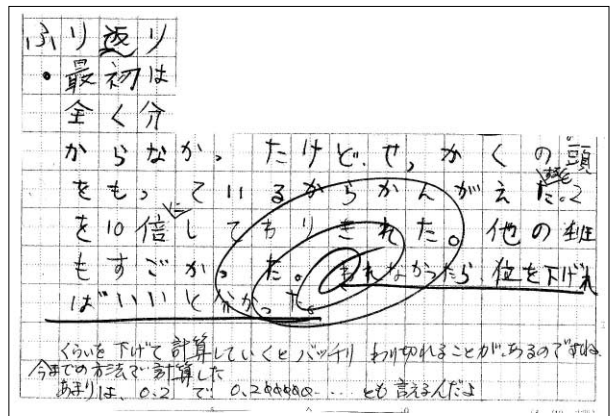 ふり返り
・最初は
全く分
からなか。たけど、せっかくの頭
をもっているからかんがえた。2
を10倍してわりきれた。他の班
もすごかった。われなかったら位を下げれ
ばいいと分かった。
くらいを下げて計算していくとバッチリわり切れることが、あるのですね。
今までの方法で計算した
あまりは、0.2で 0.20000‥‥とも言えるんだよ